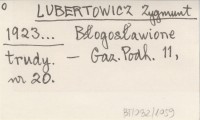 LUBERTOWICZ Zygmunt
1923... Błogosławione
trudy. — Gaz. Podh. 11,
nr 20.